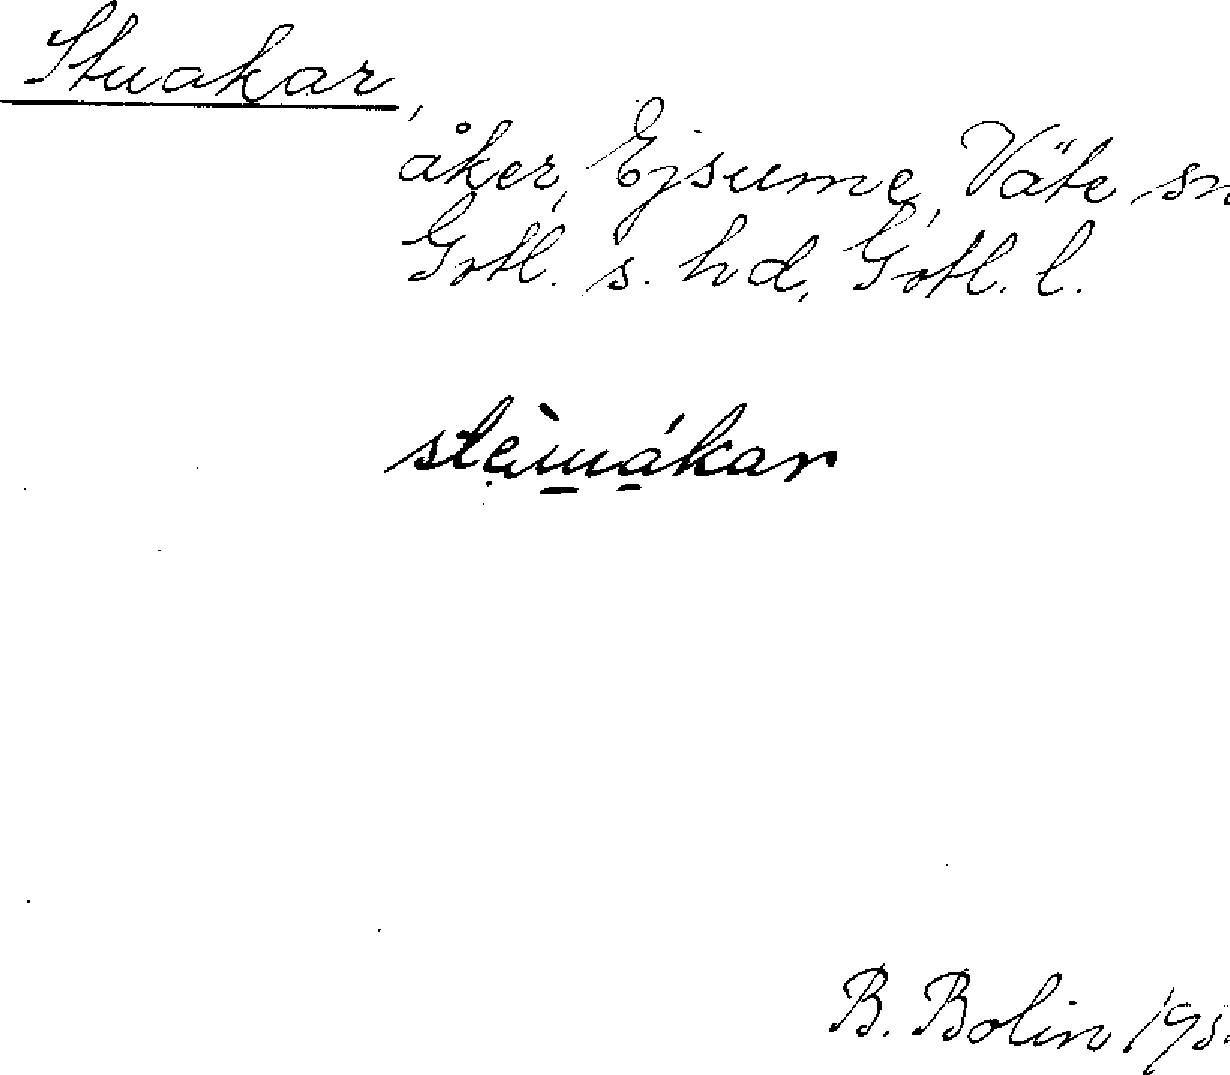 Stuakar,
åker, Ejsume, Väte sn
Gotl. s. hd, Gotl. l.
B. Bolin 195